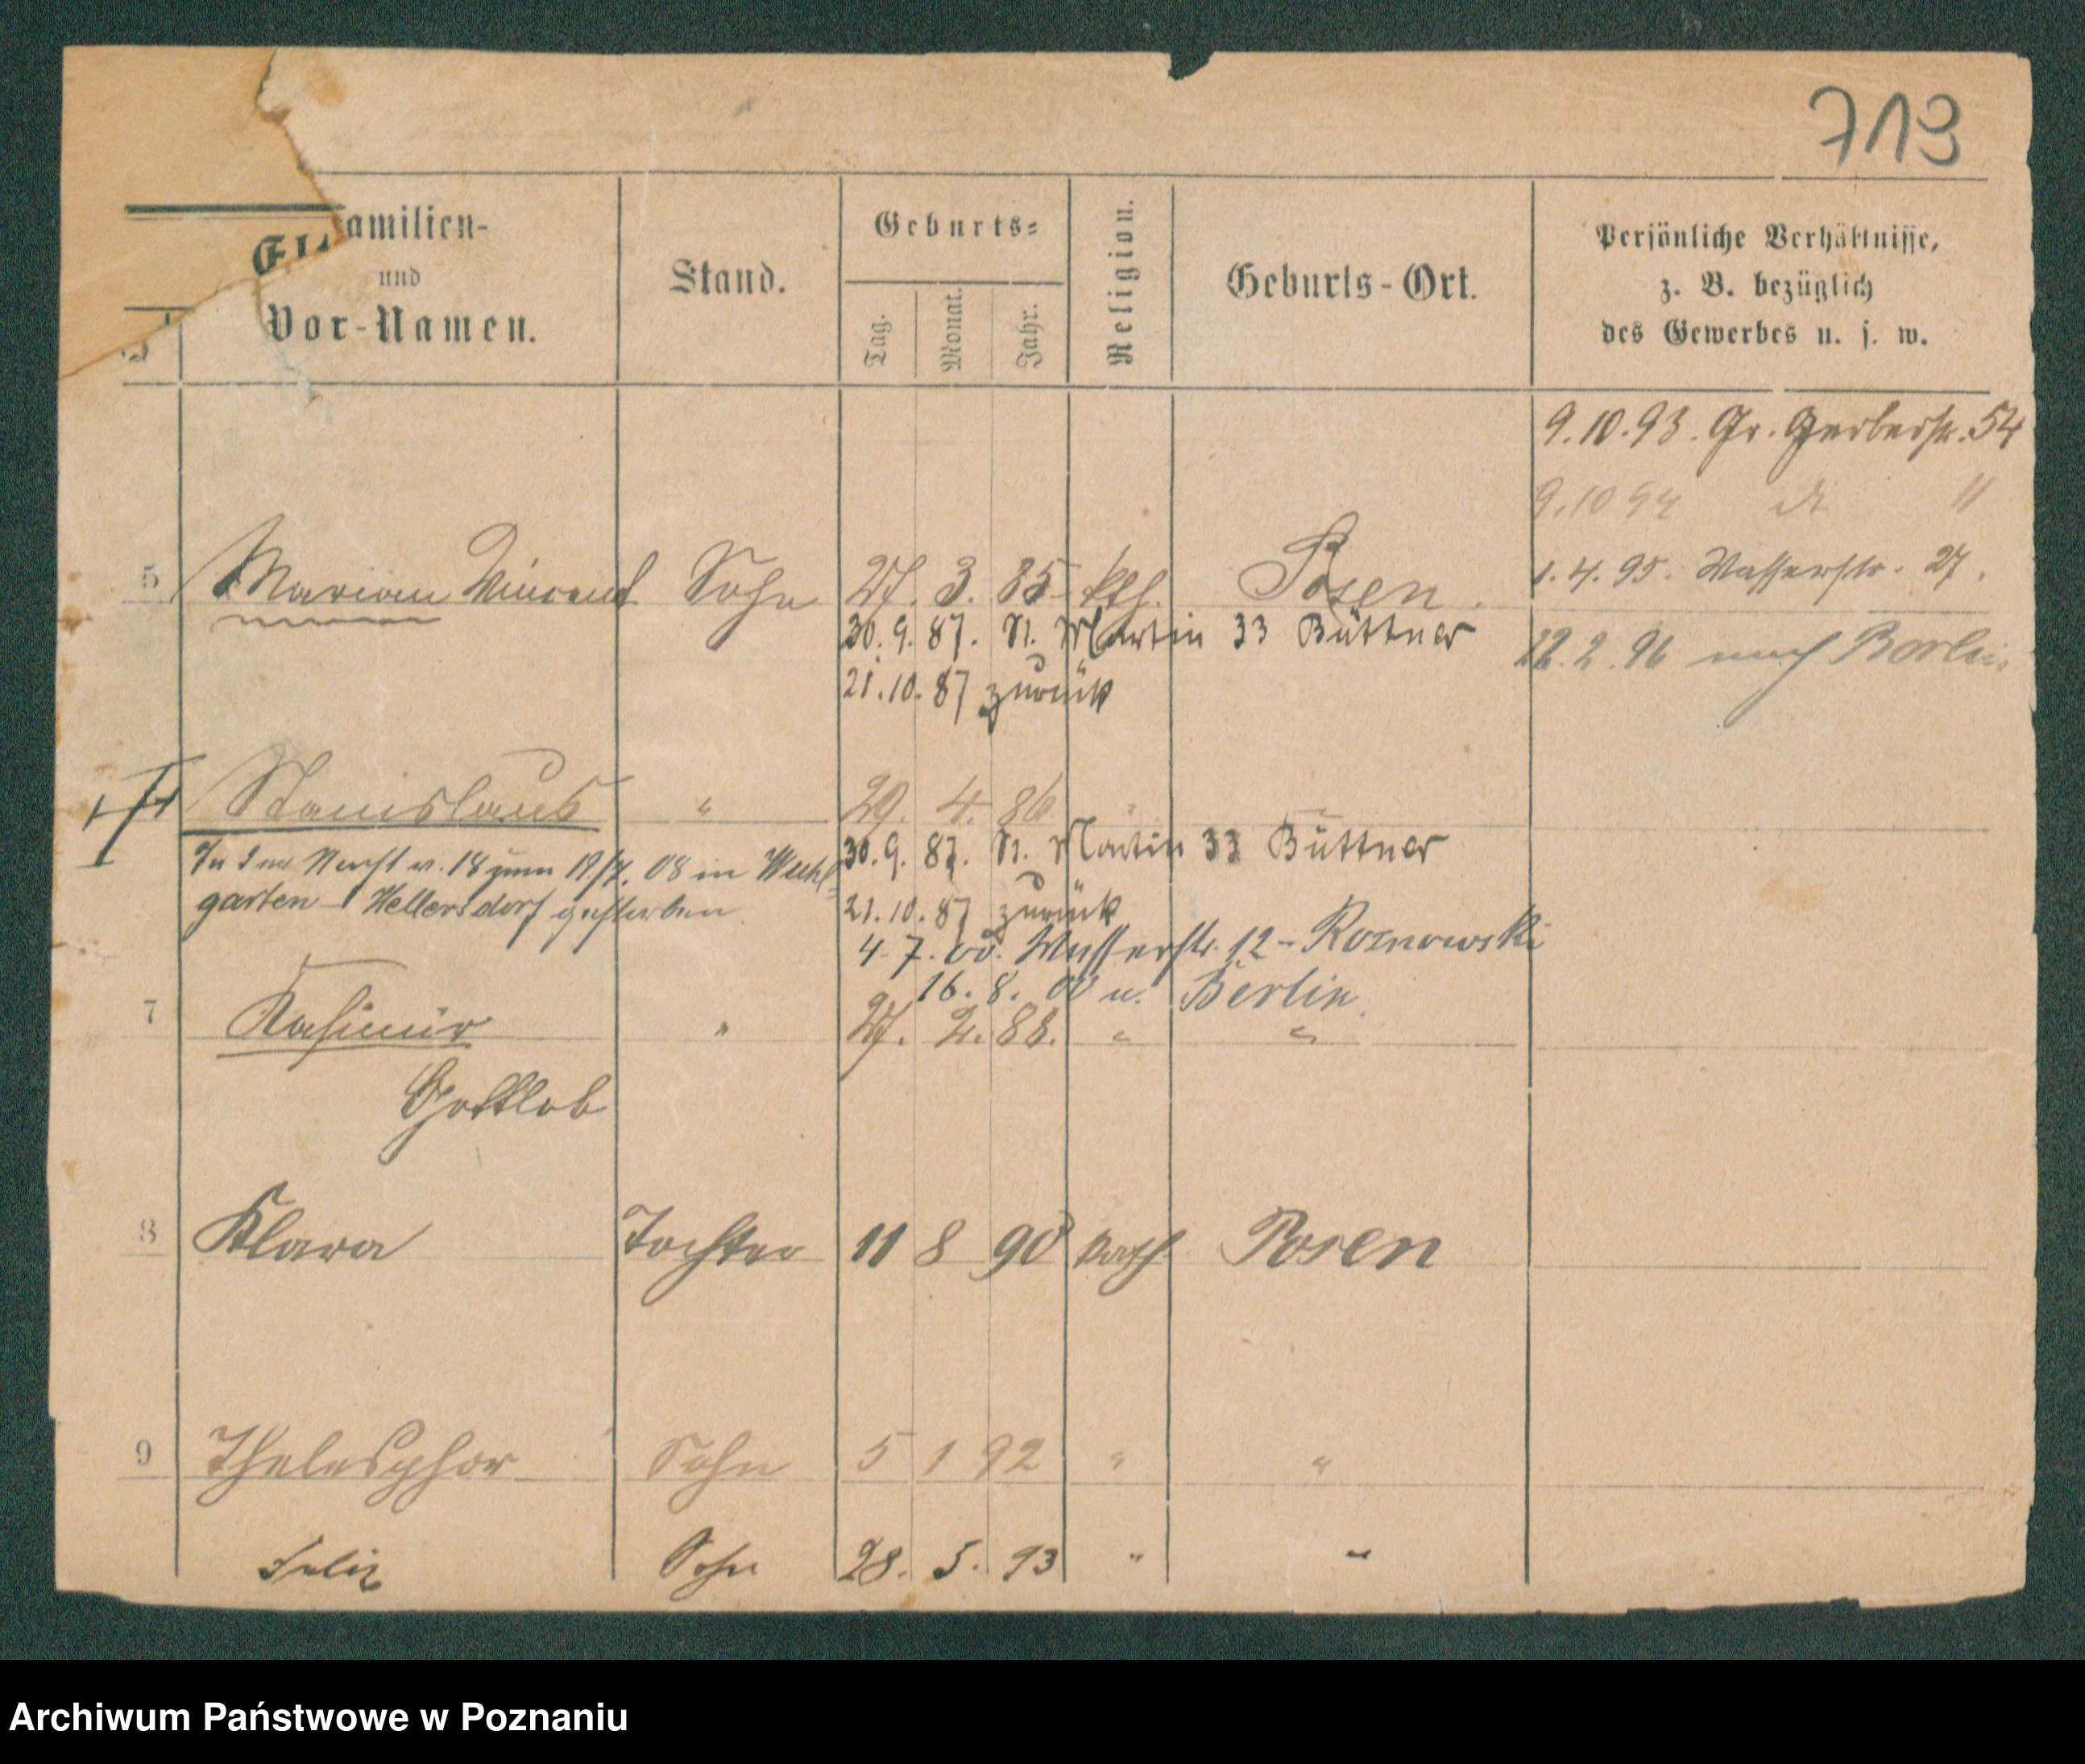 713
Familien-
und
Vor-Namen.
Stand.
Geburts-
Tag.
Monat.
Jahr.
Religion.
Geburts-Ort.
Persönliche Verhältnisse,
z. B. bezüglich
des Gewerbes u. s. w.
9.10.93. Gr. Gerberstr. 54
9.10 94 "
1.4.95. Wasserstr. 27.
5 Marian Vincent Sohn 27. 3. 85 kth. Posen.
30.9.87. St. Martin 33 Büttner
12.2.96 nach Berlin
21.10.87 zurück
Stanislaus " 29. 4. 86
In der Nacht v. 18 zum 19./7. 08 in Wuhl-
garten-Hellersdorf gestorben.
30.9.87. St. Martin 33 Büttner
21.10.87 zurück
4.7.00. Wasserstr. 12 - Roznowski
16.8.00 n. Berlin.
7 Kasimir " 27. 2. 88. " "
Gottlob
8 Klara Tochter 11 8 90 kath. Posen
9 Thelesphor Sohn 5 1 92 " "
Felix Sohn 28. 5. 93 " "
Archiwum Państwowe w Poznaniu